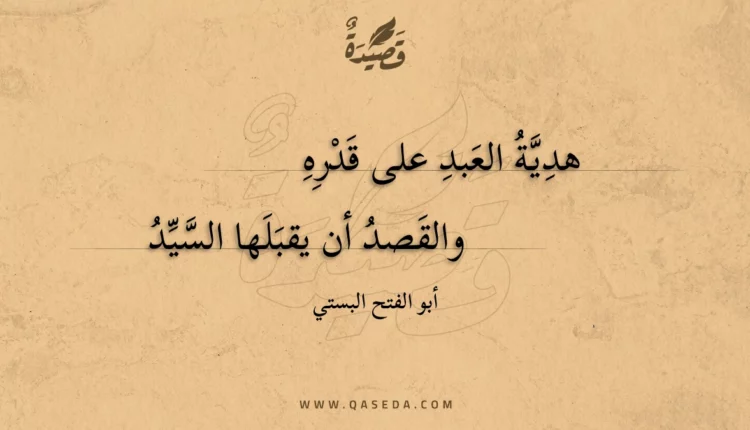 قَصِيْدَةٌ
هدِيَّةُ العَبدِ على قَدْرِهِ
والقَصدُ أن يقبَلَها السَّيِّدُ
أبو الفتح البستي
WWW.QASEDA.COM